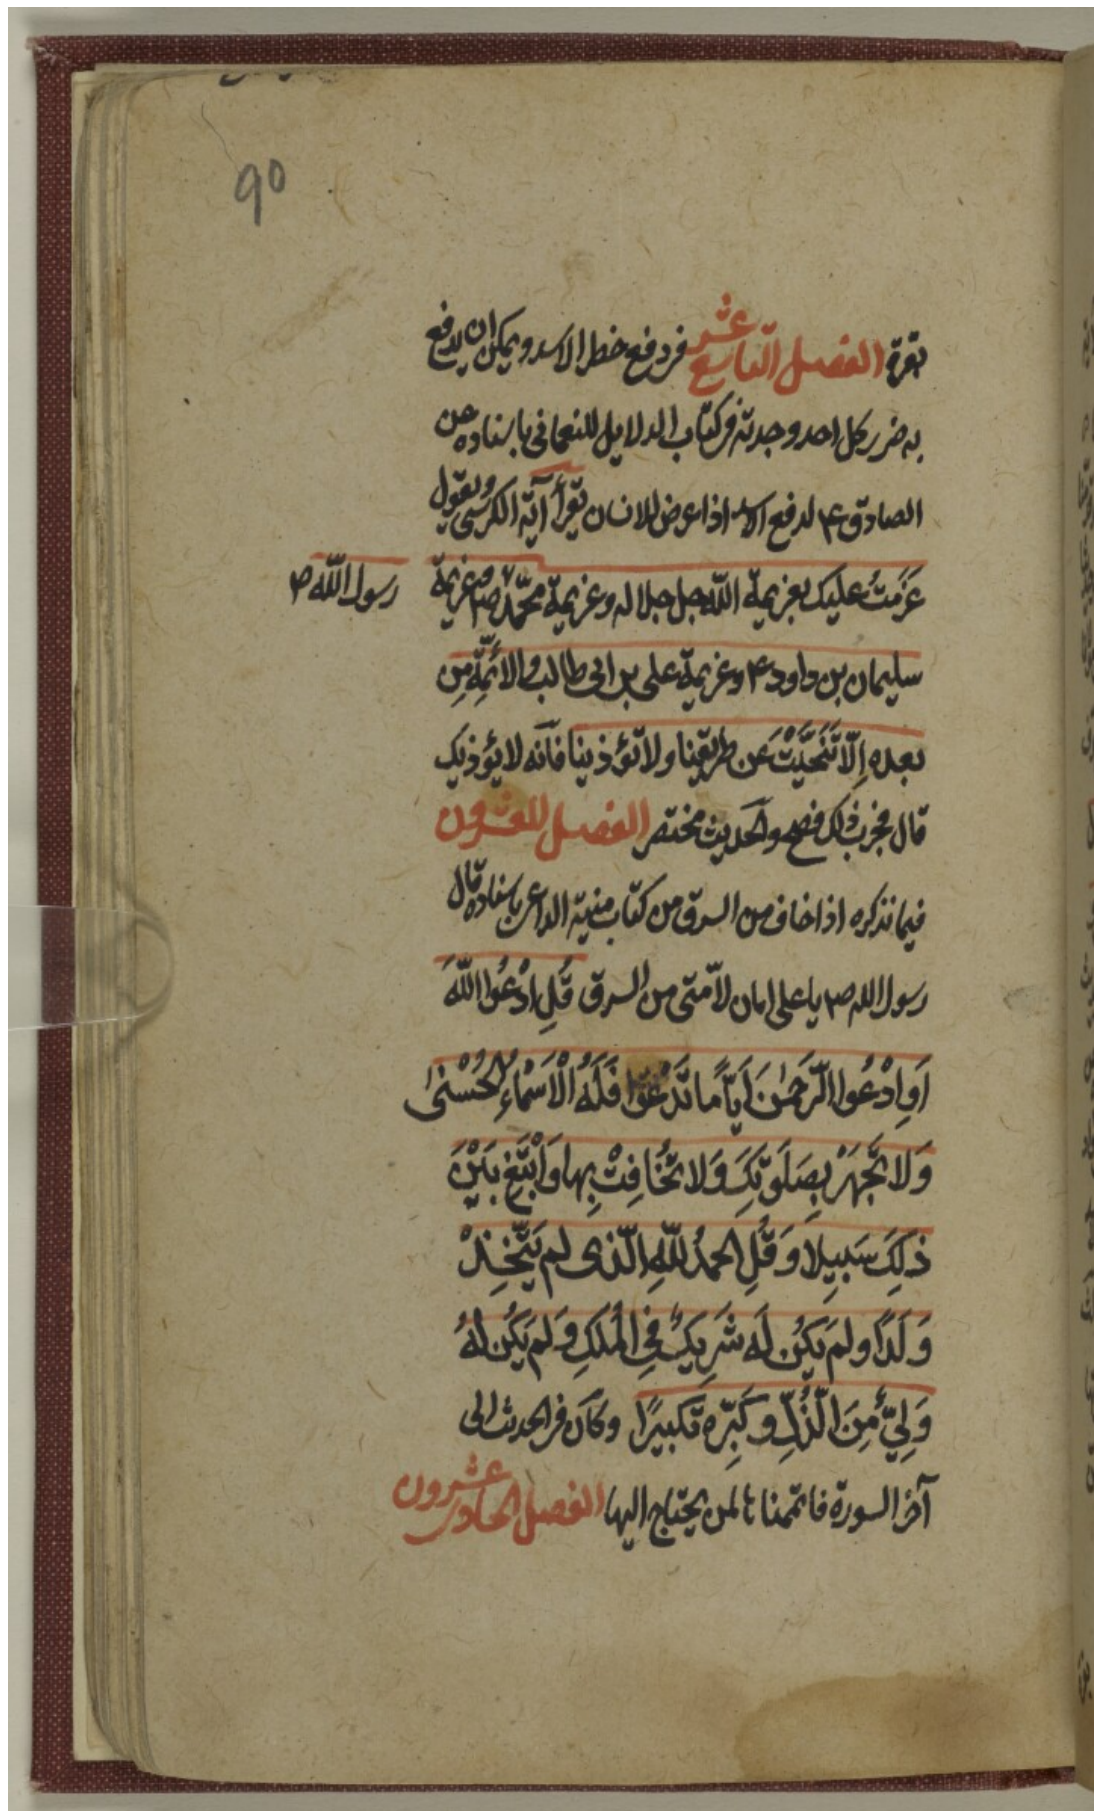 90
بقرة الفصل التاسع عشر فى دفع خطر الاسد ويمكن ان يدفع
به ضرر كل احد وجدته فى كتاب الدلايل للنعمانى باسناده عن
الصادق ع لدفع الاسد اذا عرض للانسان يقرأ آية الكرسى ويقول
عَزَمتُ عليك بعزيمة الله جل جلاله وعزيمة محمّد ص وعزيمة
رسول الله ص
سليمان بن داود ع وعزيمة على بن ابى طالب والائمّة مِن
بعده اِلّا تَنَحَّيْتَ عَن طريقنا ولا تؤذينا فانّه لا يؤذيك
قال فجرب ذلك فصح والحديث مختصر الفصل العشرون
فيما نذكره اذا خاف من السرق من كتاب منية الداعى باسناده قال
رسول الله ص يا على امان لامّتى من السرق قُلِ ادْعُوا اللّٰهَ
اَوِ ادْعُوا الرَّحمٰنَ اَيّاً مّا تَدْعُوا فَلَهُ الْاَسْمَاءُ الْحُسْنىٰ
وَلا تَجْهَرْ بِصَلَوتِكَ وَلا تُخَافِتْ بِها وَابْتَغِ بَيْنَ
ذلِكَ سَبِيلاً وَقُلِ الحمدُ للّهِ الّذى لم يَتَّخِذْ
وَلَدًا ولم يَكُن لَه شَرِيكٌ فِى الْمُلكِ وَلم يَكُن لَهُ
وَلِىٌّ مِنَ الذُّلِّ وكَبِّره تكبيرًا وكان فى الحديث الى
آخر السورة فاتممناها لمن يحتاج اليها الفصل الحادى عشرون